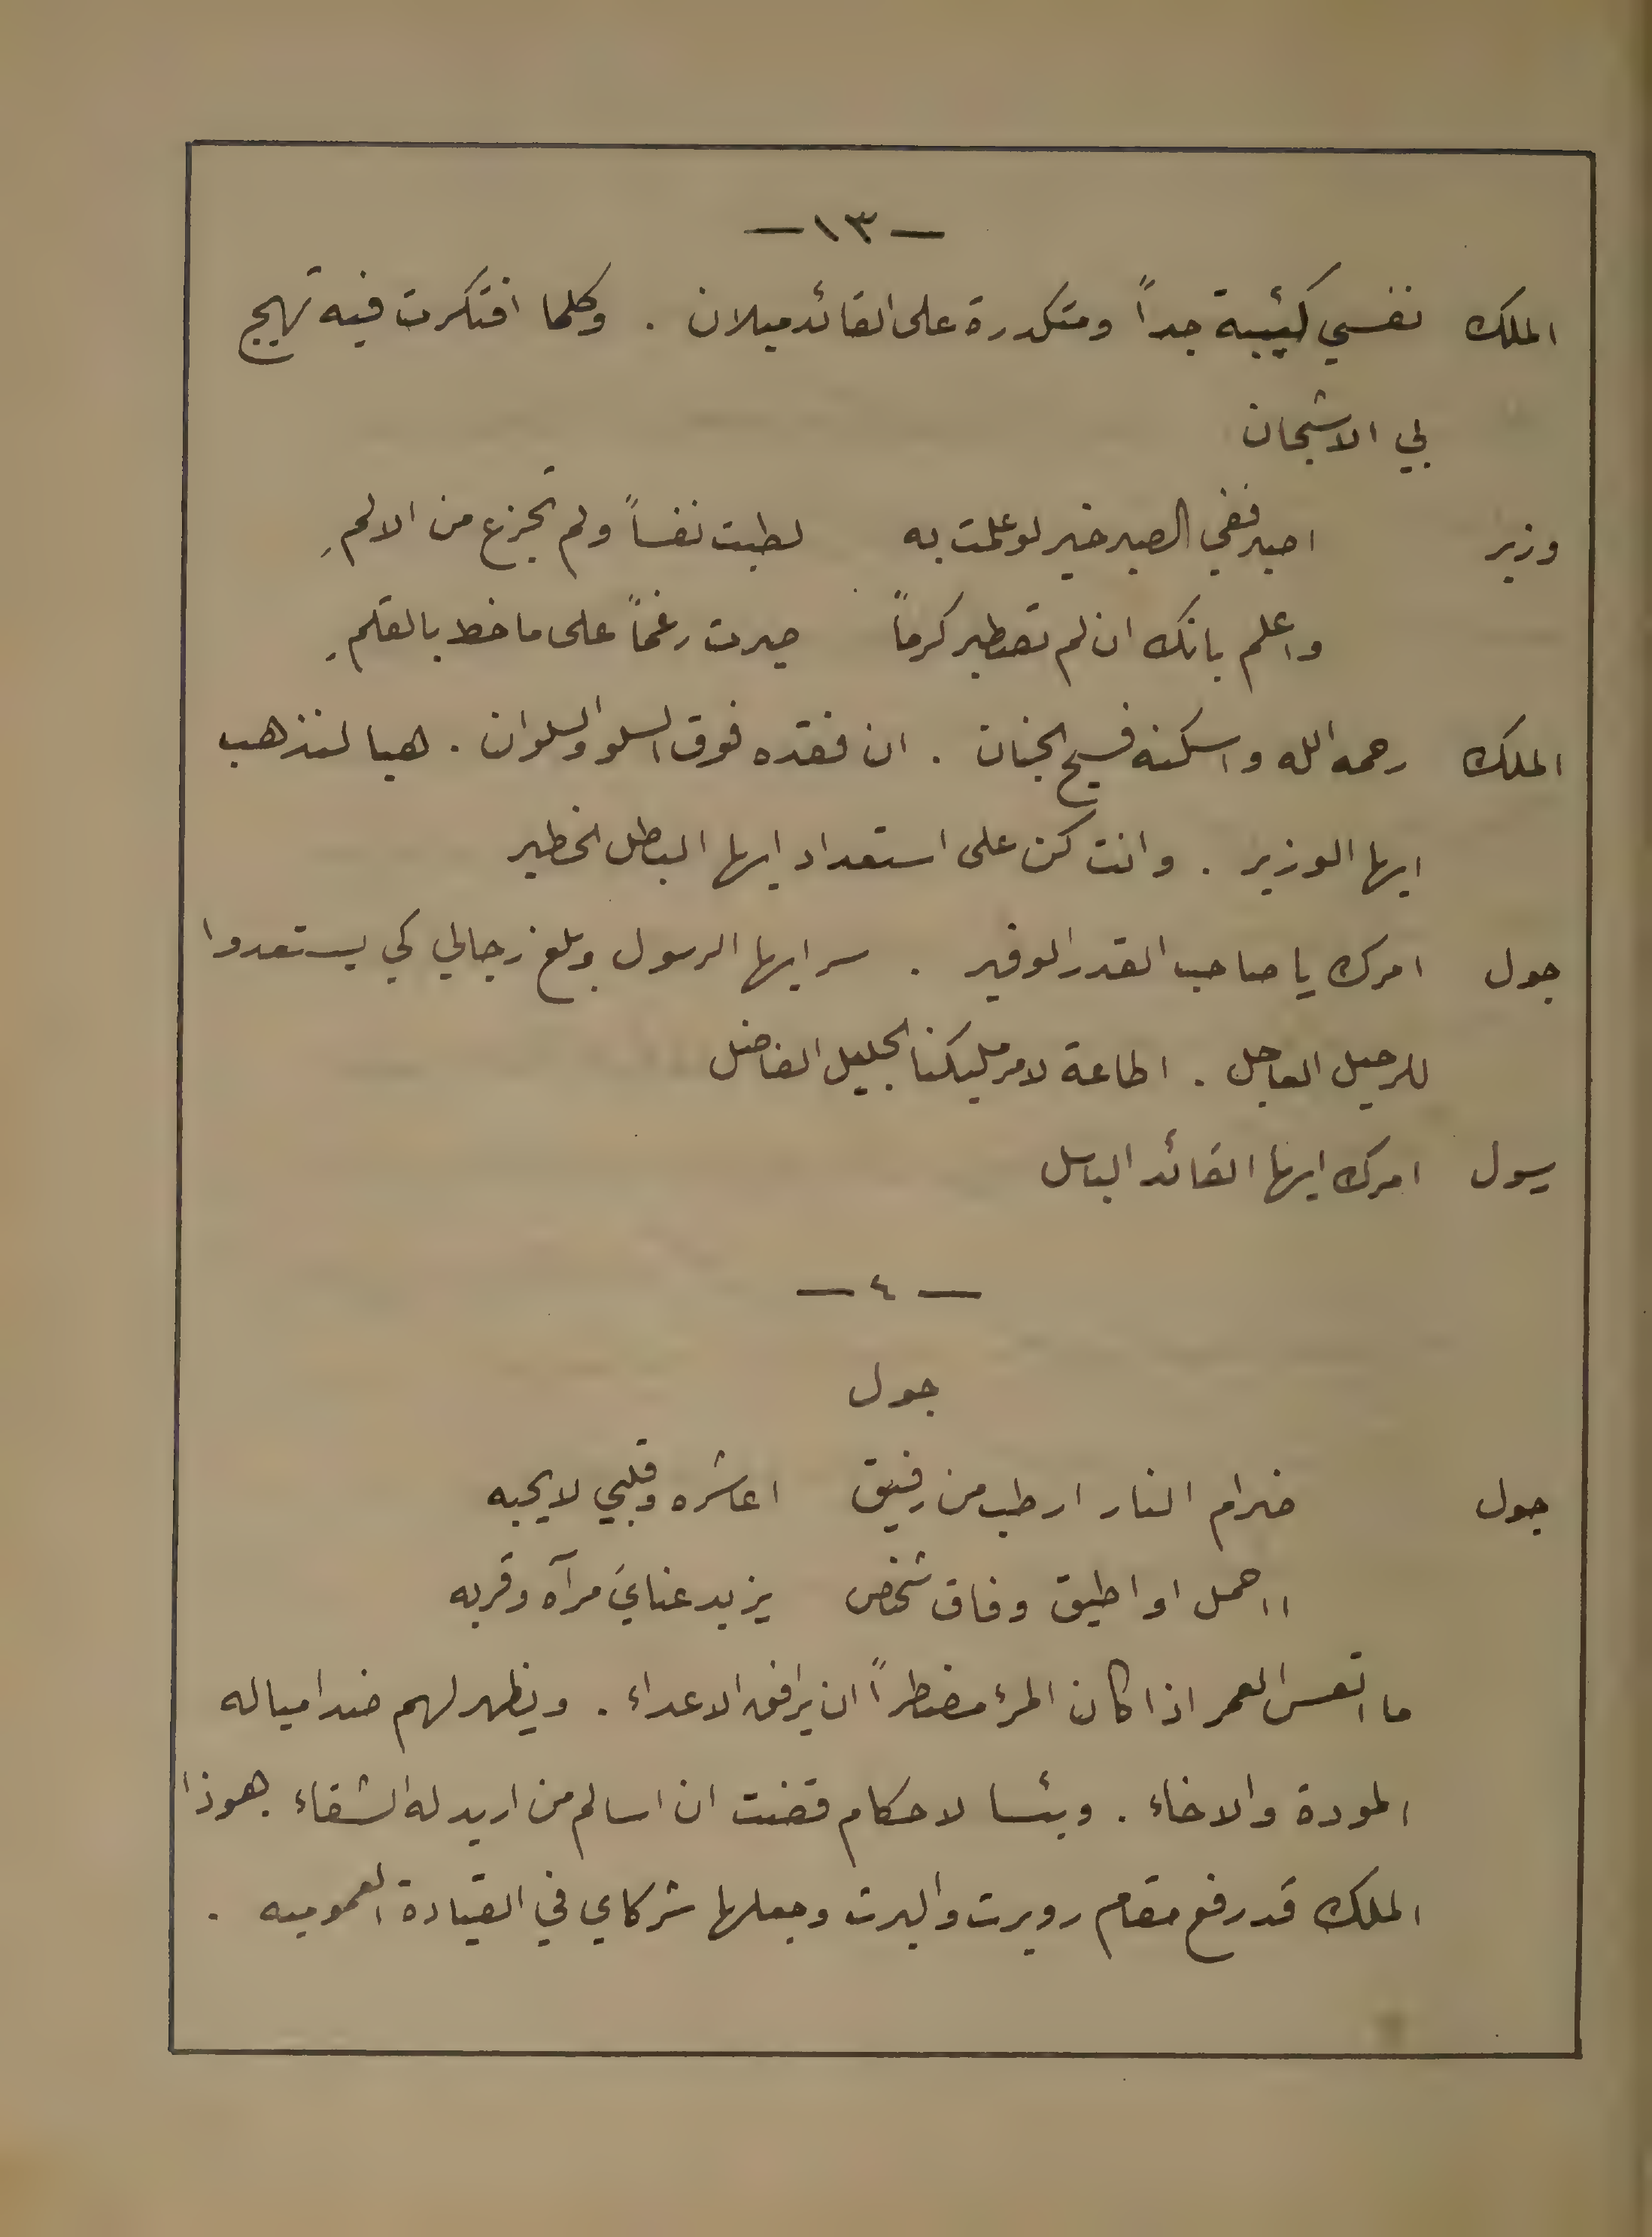 — ١٣ —
الملك نفسي كئيبة جداً ومتكدرة على القائد ميلان . وكلما افتكرت فيه تهيج
لي الاشجان
وزير اصبر ففي الصبر خير لو علمت به لطبت نفساً ولم تجزع من الالمِ
واعلم بانك ان لم تصطبر كرماً صبرت رغماً على ما خط بالقلمِ
الملك رحمه الله واسكنه فسيح الجنان . ان فقده فوق السلو والسلوان . هيا لنذهب
ايها الوزير . وانت كن على استعداد ايها البطل الخطير
جول امرك يا صاحب القدر الوفير . سر ايها الرسول وبلغ رجالي كي يستعدوا
للرحيل العاجل . اطاعة لامر مليكنا الجليل الفاضل
رسول امرك ايها القائد الباسل
— ٤ —
جول
جول ضرام النار ارطب من رفيق اعاشره وقلبي لا يحبه
ااحمل او اطيق وفاق شخص يزيد عنايَ مرآه وقربه
ما اتعس العمر اذا كان المرء مضطراً ان يرافق الاعداء . ويظهر لهم ضد امياله
المودة والاخاء . وبئسا لاحكام قضت ان اسالم من اريد له الشقاء . هوذا
الملك قد رفع مقام روبرت والبرت وجعلها شركاي في القيادة العموميه .